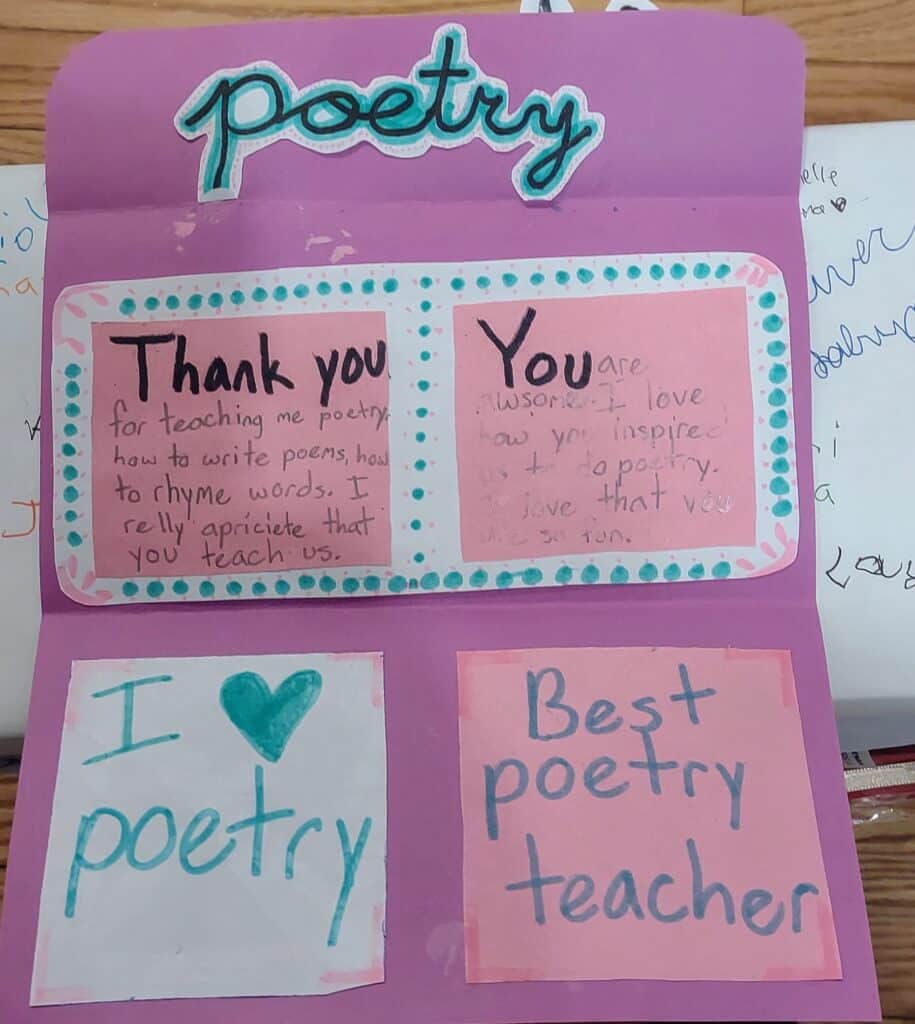 poetry
Thank you
for teaching me poetry.
how to write poems, how
to rhyme words. I
relly apriciete that
you teach us.
You are
awsome. I love
how you inspired
us to do poetry.
I love that you
are so fun.
I ♥
poetry
Best
poetry
teacher